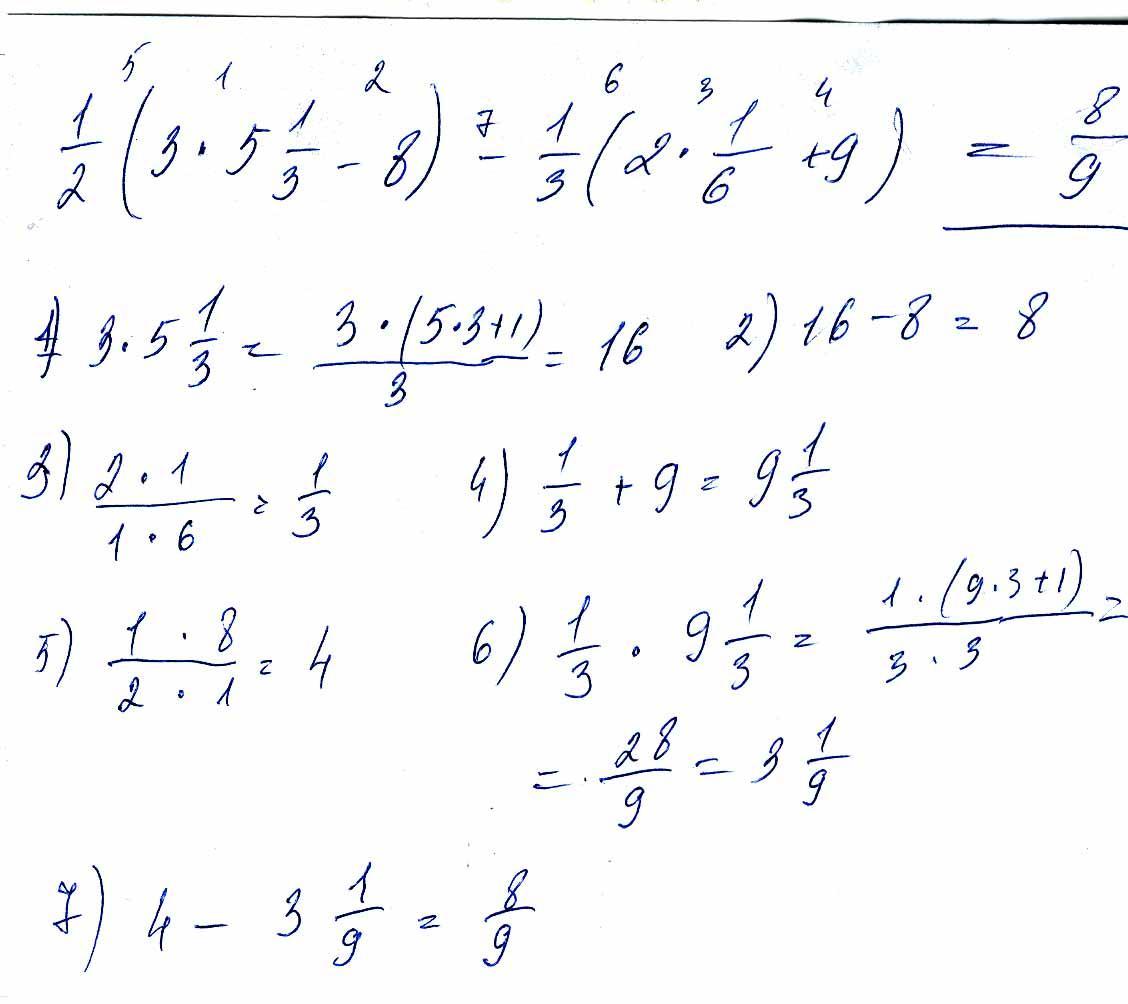 5 1 2 6 3 4
1/2 (3 · 5 1/3 - 8) 7 - 1/3 (2 · 1/6 + 9) = 8/9
1) 3 · 5 1/3 = 3 · (5 · 3 + 1)/3 = 16 2) 16 - 8 = 8
3) 2 · 1/1 · 6 = 1/3 4) 1/3 + 9 = 9 1/3
5) 1 · 8/2 · 1 = 4 6) 1/3 · 9 1/3 = 1 · (9 · 3 + 1)/3 · 3 =
= 28/9 = 3 1/9
7) 4 - 3 1/9 = 8/9